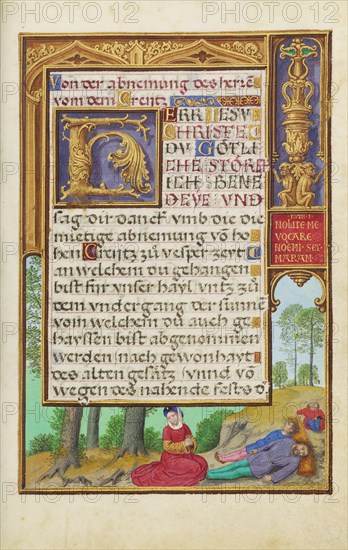 Von der abnemung des heren
vom dem Creütz
HERR IESV
CHRISTE
DV GÖTLI
CHE STÖRSF
ICH BENE
DEYE VND
sag dir danck vmb die die
mietige abnemung vō ho
hen Creitz zů vesper zeyt
an welchem du gehangen
bist für vnser hayl vntz zů
dem vndergang der sunnē
vom welchem du auch ge
hayssen bist abgenomen
werden nach gewonhayt
des alten gesätz vnnd vō
wegen des nahende fests ď
RVTH I
NOLITE ME
VOCARE
NOEMI SET
MARAM